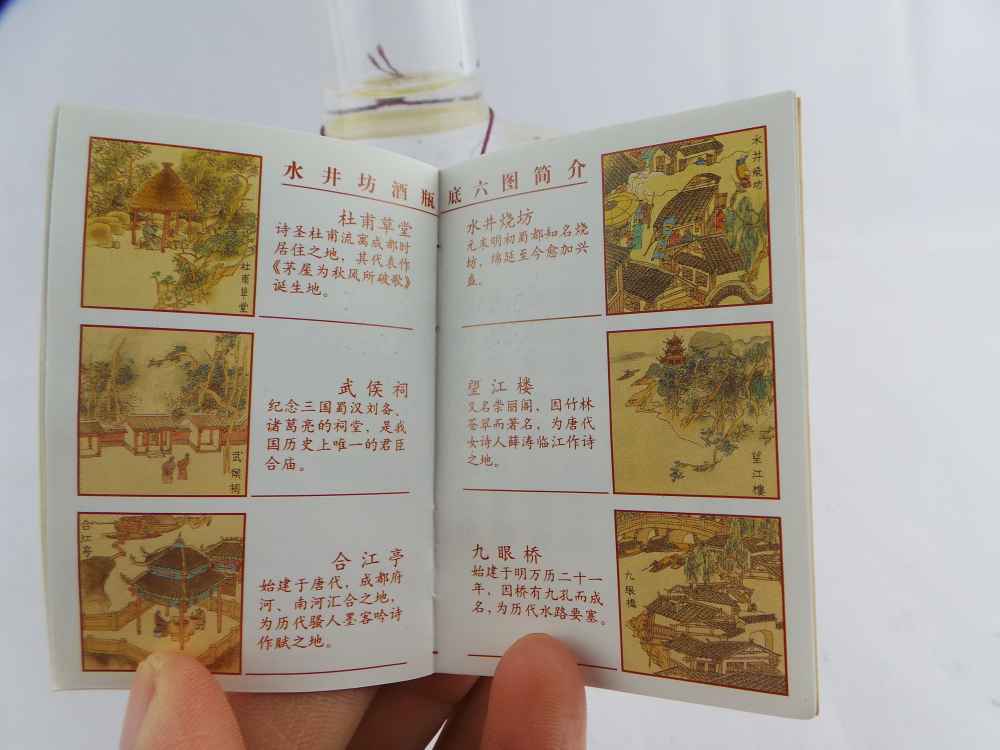 水井坊酒瓶底六图简介
杜甫草堂
诗圣杜甫流寓成都时
居住之地，其代表作
《茅屋为秋风所破歌》
诞生地。
杜甫草堂
武侯祠
纪念三国蜀汉刘备、
诸葛亮的祠堂、是我
国历史上唯一的君臣
合庙。
武侯祠
合江亭
始建于唐代，成都府
河、南河汇合之地，
为历代骚人墨客吟诗
作赋之地。
合江亭
水井烧坊
元末明初蜀都知名烧
坊，绵延至今愈加兴
盛。
水井烧坊
望江楼
又名崇丽阁，因竹林
苍翠而著名，为唐代
女诗人薛涛临江作诗
之地。
望江楼
九眼桥
始建于明万历二十一
年，因桥有九孔而成
名，为历代水路要塞。
九眼桥